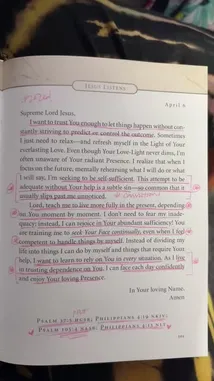 JESUS LISTENS
April 6
Supreme Lord Jesus,
I want to trust You enough to let things happen without con-
stantly striving to predict or control the outcome. Sometimes
I just need to relax—and refresh myself in the Light of Your
everlasting Love. Even though Your Love-Light never dims, I'm
often unaware of Your radiant Presence. I realize that when I
focus on the future, mentally rehearsing what I will do or what
I will say, I'm seeking to be self-sufficient. This attempt to be
adequate without Your help is a subtle sin—so common that it
usually slips past me unnoticed.
Lord, teach me to live more fully in the present, depending
on You moment by moment. I don't need to fear my inade-
quacy; instead, I can rejoice in Your abundant sufficiency! You
are training me to seek Your Face continually, even when I feel
competent to handle things by myself. Instead of dividing my
life into things I can do by myself and things that require Your
help, I want to learn to rely on You in every situation. As I live
in trusting dependence on You, I can face each day confidently
and enjoy Your loving Presence.
In Your loving Name,
Amen
PHILIPPIANS 4:19 NKJV;
PSALM 105:4 NASB; PHILIPPIANS 4:13 NET